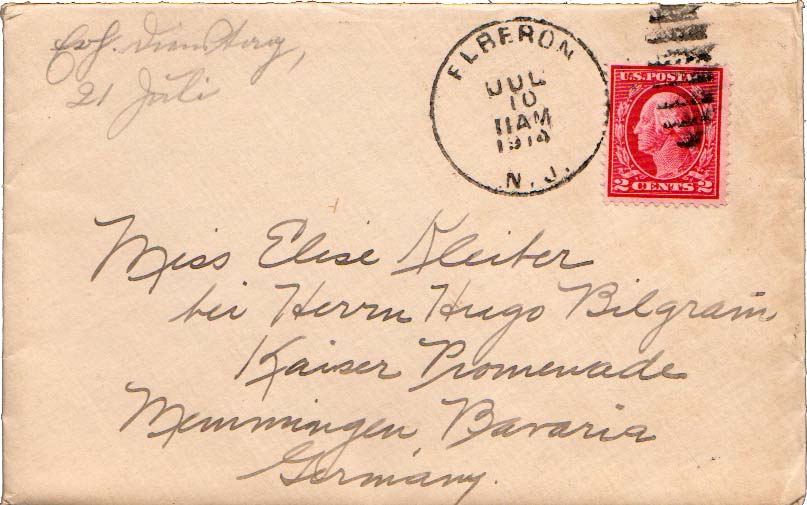 Erh. Dienstag,
21 Juli
ELBERON
JUL
10
11 AM
1914
N.J.
U.S. POSTA
2 CENTS 2
Miss Elise Kleiber
bei Herrn Hugo Bilgram
Kaiser Promenade
Memmingen Bavaria
Germany.